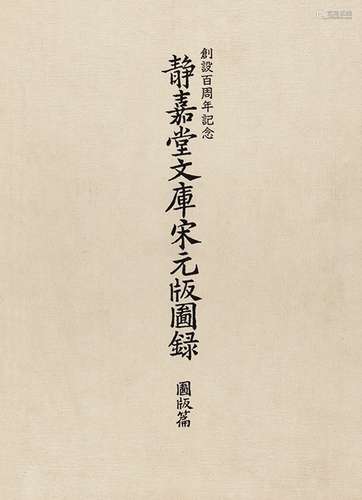 創設百周年記念
静嘉堂文庫宋元版圖録
圖版篇